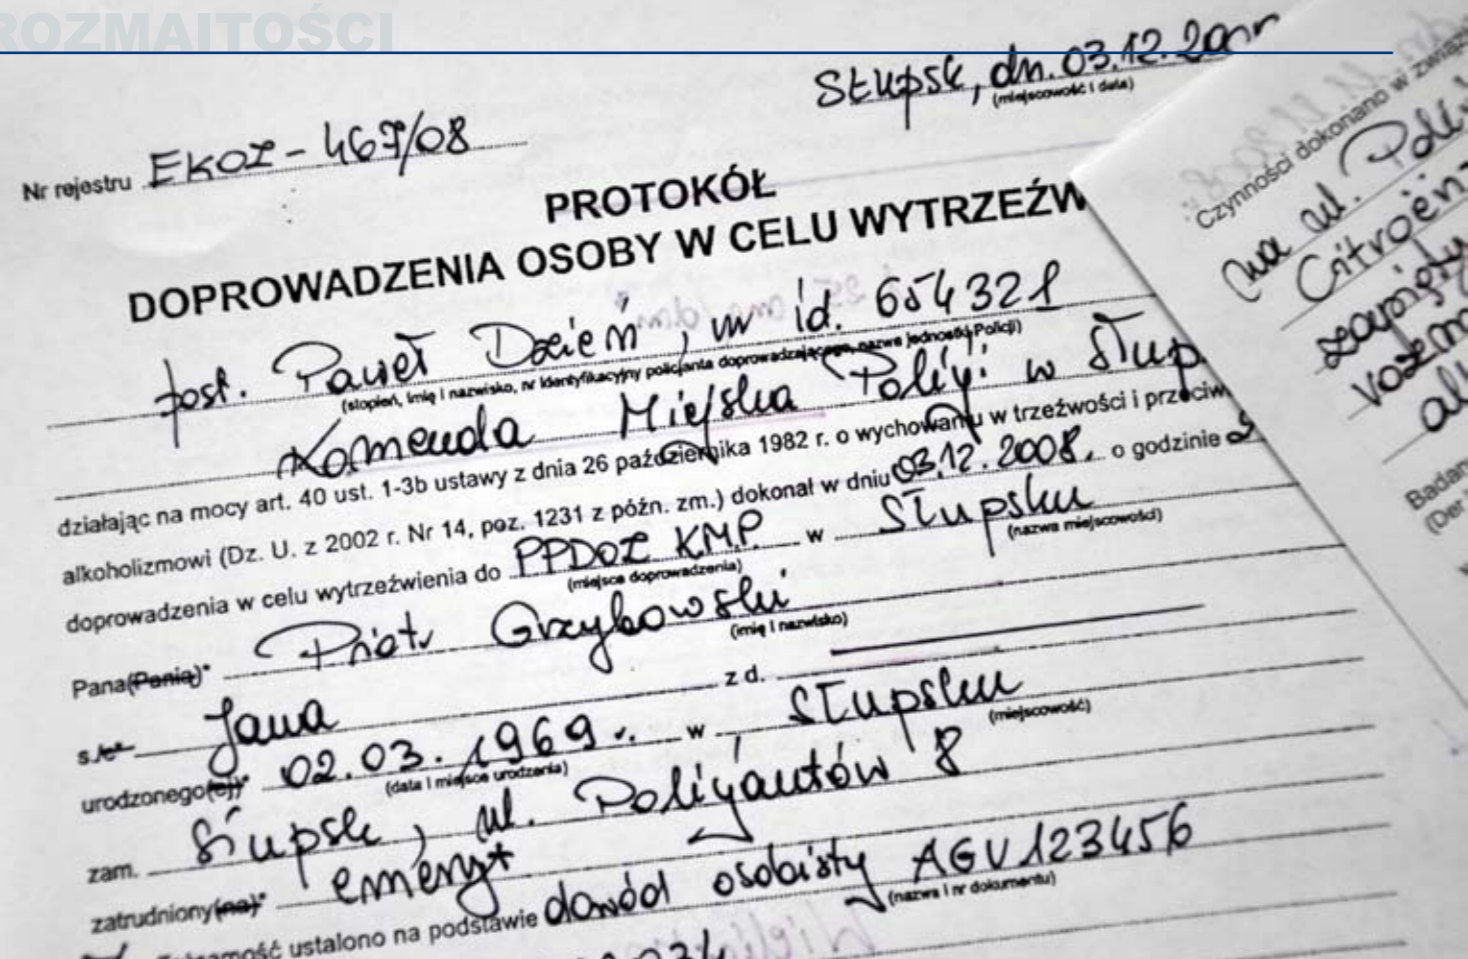 ROZMAITOŚCI
Słupsk, dn. 03.12.
(miejscowość i data)
Nr rejestru EKOZ-467/08
PROTOKÓŁ
DOPROWADZENIA OSOBY W CELU WYTRZEŹW
post. Paweł Dzień, nr id. 654321
(stopień, imię i nazwisko, nr identyfikacyjny policjanta doprowadzającego, nazwa jednostki Policji)
Komenda Miejska Policji w Słup
działając na mocy art. 40 ust. 1-3b ustawy z dnia 26 października 1982 r. o wychowaniu w trzeźwości i przeciw
alkoholizmowi (Dz. U. z 2002 r. Nr 14, poz. 1231 z późn. zm.) dokonał w dniu 03.12.2008. o godzinie
doprowadzenia w celu wytrzeźwienia do PPDOZ KMP w Słupsku
(miejsce doprowadzenia)
(nazwa miejscowości)
Pana(Panią)* Piotr Grzybowski
(imię i nazwisko)
s./c* Jana z d.
urodzonego(ej)* 02.03.1969r. w Słupsku
(data i miejsce urodzenia)
(miejscowość)
zam. Słupsk, ul. Policjantów 8
zatrudniony(na)* emeryt
ustalono na podstawie dowód osobisty AGV123456
(nazwa i nr dokumentu)
Czynności dokonano w związ
na ul.
Citroën
Badan
(Der